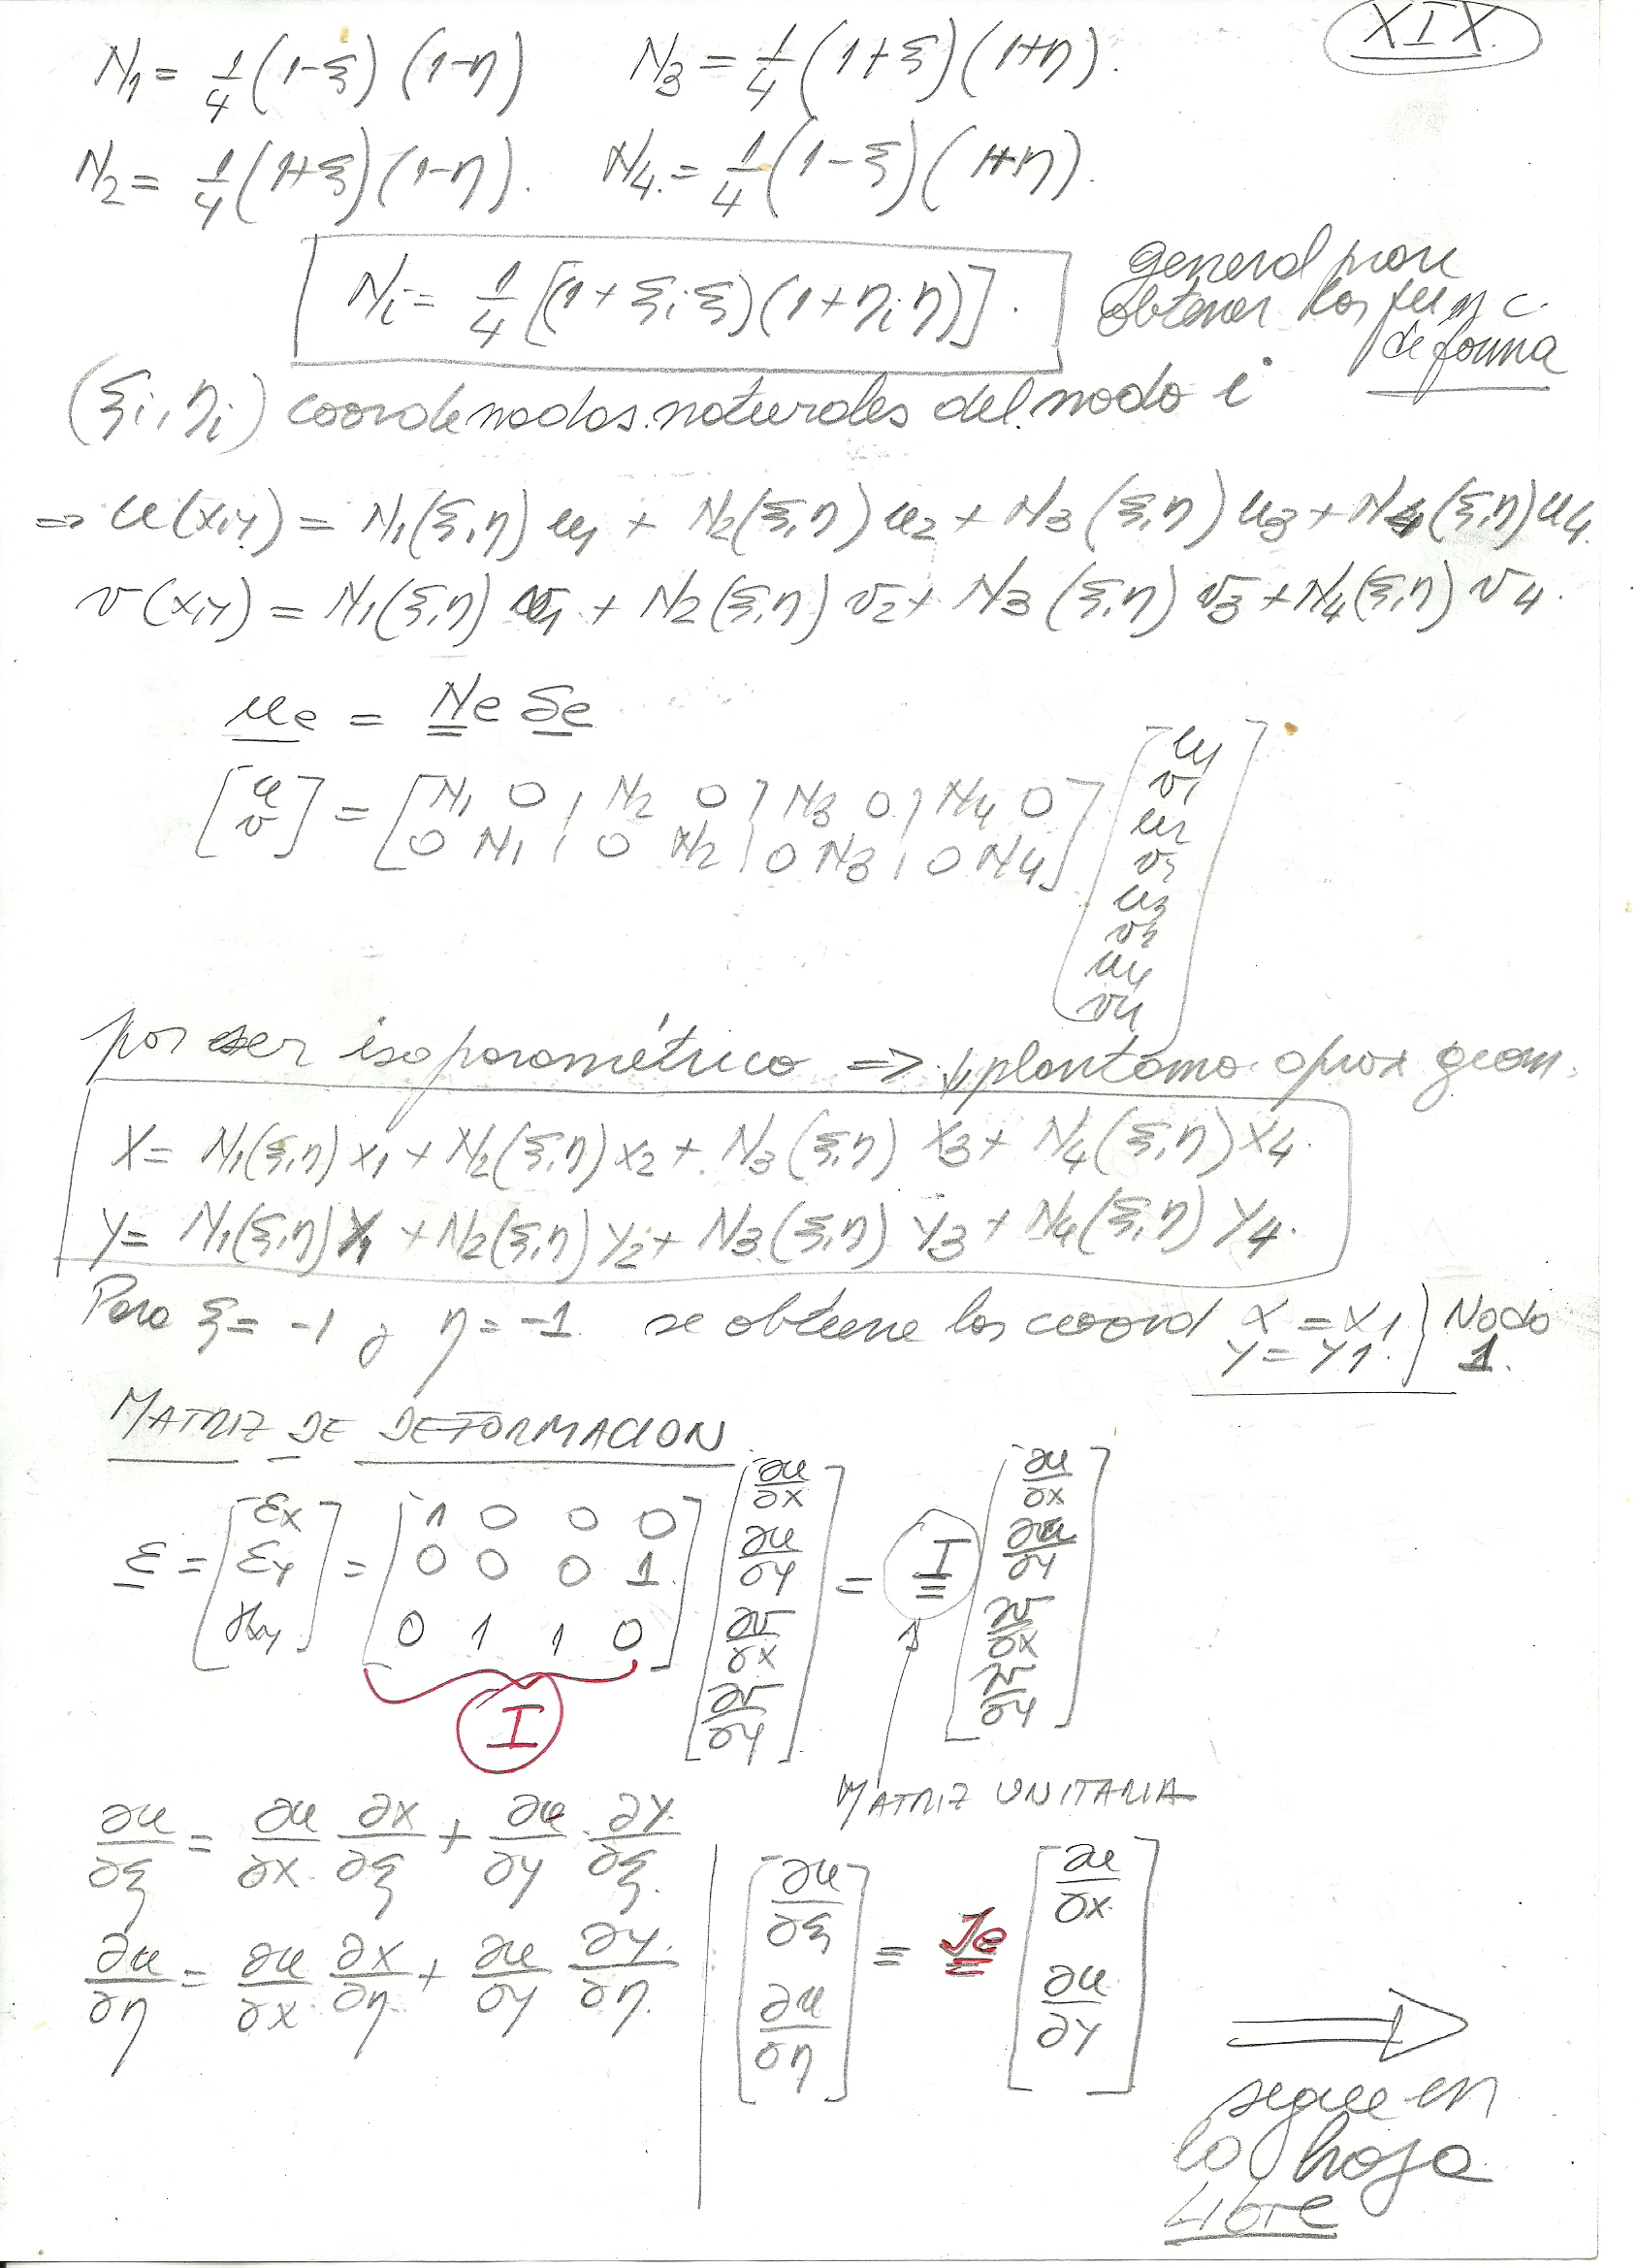 XIX.
N1 = 1/4 (1-ξ) (1-η)    N3 = 1/4 (1+ξ)(1+η).
N2 = 1/4 (1+ξ)(1-η).    N4. = 1/4 (1-ξ)(1+η).
Ni = 1/4 [(1+ξi ξ)(1+ηi η)].
general para
obtener las func.
de forma
(ξi, ηi) coordenadas naturales del nodo i
⇒ u(x,y) = N1(ξ,η) u1 + N2(ξ,η) u2 + N3(ξ,η) u3 + N4(ξ,η) u4.
v(x,y) = N1(ξ,η) v1 + N2(ξ,η) v2 + N3(ξ,η) v3 + N4(ξ,η) v4.
ue = Ne δe
[u v] = [N1 0 N2 0 N3 0 N4 0
0 N1 0 N2 0 N3 0 N4] [u1 v1 u2 v2 u3 v3 u4 v4]
por ser isoparamétrico ⇒ plantamo aprox geom.
X = N1(ξ,η) x1 + N2(ξ,η) x2 + N3(ξ,η) x3 + N4(ξ,η) x4.
Y = N1(ξ,η) Y1 + N2(ξ,η) Y2 + N3(ξ,η) Y3 + N4(ξ,η) Y4.
Para ξ = -1 y η = -1. se obtiene las coord x = x1 } Nodo
y = y1. } 1.
MATRIZ DE DEFORMACION
ε = [εx εy γxy] = [1 0 0 0
0 0 0 1
0 1 1 0] [∂u/∂x ∂u/∂y ∂v/∂x ∂v/∂y] = I [∂u/∂x ∂u/∂y ∂v/∂x ∂v/∂y]
I
MATRIZ UNITARIA
∂u/∂ξ = ∂u/∂x ∂x/∂ξ + ∂u/∂y · ∂y/∂ξ
∂u/∂η = ∂u/∂x ∂x/∂η + ∂u/∂y ∂y/∂η
[∂u/∂ξ ∂u/∂η] = Je [∂u/∂x ∂u/∂y]
segue en
la hoja
libre